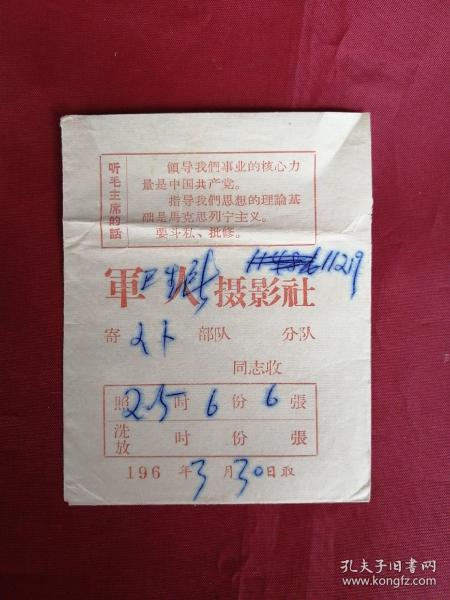 听毛主席的話
領导我們事业的核心力
量是中国共产党。
指导我們思想的理論基
础是馬克思列宁主义。
要斗私、批修。
11219
軍人摄影社
寄 部队 分队
同志收
照 25 时 6 份 6 張
洗放 时 份 張
196 年 3 月 30 日取
孔夫子旧书网
www.kongfz.com